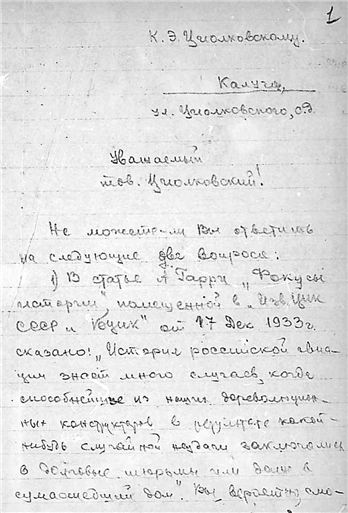 1
К. Э. Циолковскому.
Калуга,
ул. Циолковского,
Уважаемый
тов. Циолковский!
Не можете ли Вы ответить
на следующие две вопроса:
1) В статье А Гарри „Фокусы
истории" помещенной в „Изв. ЦИК
СССР и ВЦИК" от 17 Дек 1933 г.
сказано: „История российской авиа-
ции знает много случаев, когда
способнейшие из наших дореволюцион-
ных конструкторов в результате какой-
нибудь случайной неудачи заключались
в долговые тюрьмы или даже в
сумасшедший дом". Вы, вероятно, смо-